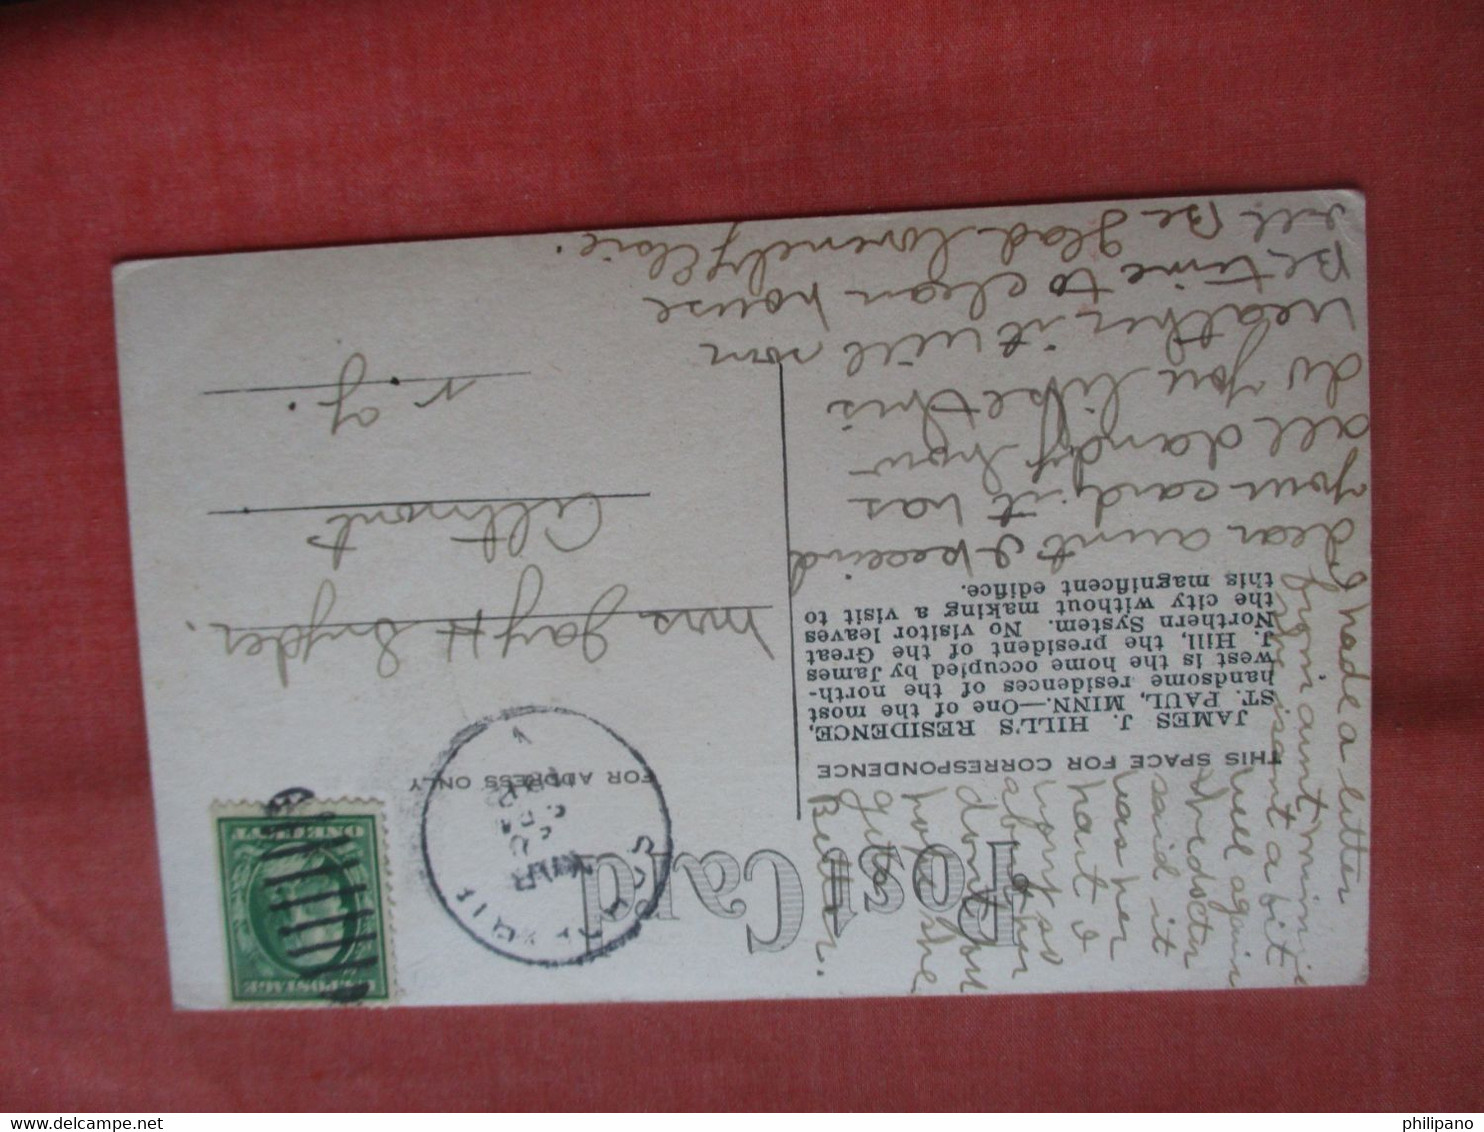 Post Card
THIS SPACE FOR CORRESPONDENCE
FOR ADDRESS ONLY
JAMES J. HILL'S RESIDENCE,
ST. PAUL, MINN.—One of the most
handsome residences of the north-
west is the home occupied by James
J. Hill, the president of the Great
Northern System. No visitor leaves
the city without making a visit to
this magnificent edifice.
dear aunt I
your card, it was
all dandy how
do you like this
weather it will
Be time to clean house
Be glad
I hade a letter
from aunt minnie
isant a bit
well again
the doctor
said it
was her
hart I
dont you
hope she
gets
Better.
Mrs Jay H Snyder.
Altmont
n. y.
MAR
U.S. POSTAGE
ONE CENT
philipano
delcampe.net